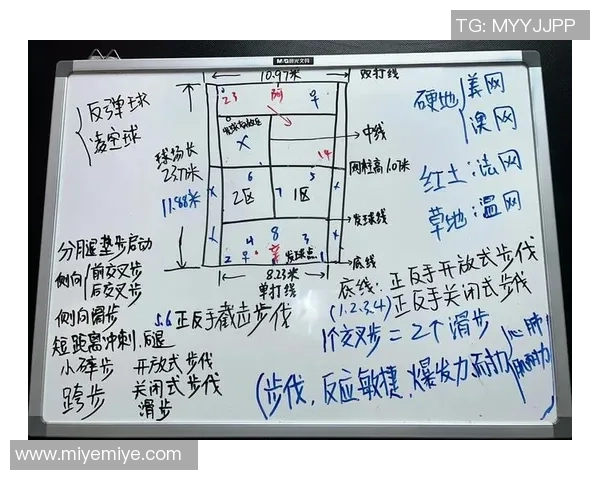 TG: MYYJJPP
M&G 晨光文具
10.97米
双打线
反弹球
凌空球
硬地
美网
澳网
中线
网柱高1.07米
球场长
23.77米
11.88米
红土：法网
草地：温网
2区
1区
发球线
发球点
底线
8.23米
单打线
分腿垫步启动
侧向
前交叉步
后交叉步
侧向滑步
短距离冲刺、后退
小碎步 开放式步伐
跨步 关闭式步伐
滑步
5.6正反手截击步伐
底线：正反手开放式步伐
(1.2.3.4)正反手关闭式步伐
1个交叉步=2个滑步
(步伐，反应敏捷，爆发力 耐力
心肺
肌耐力
www.miyemiye.com